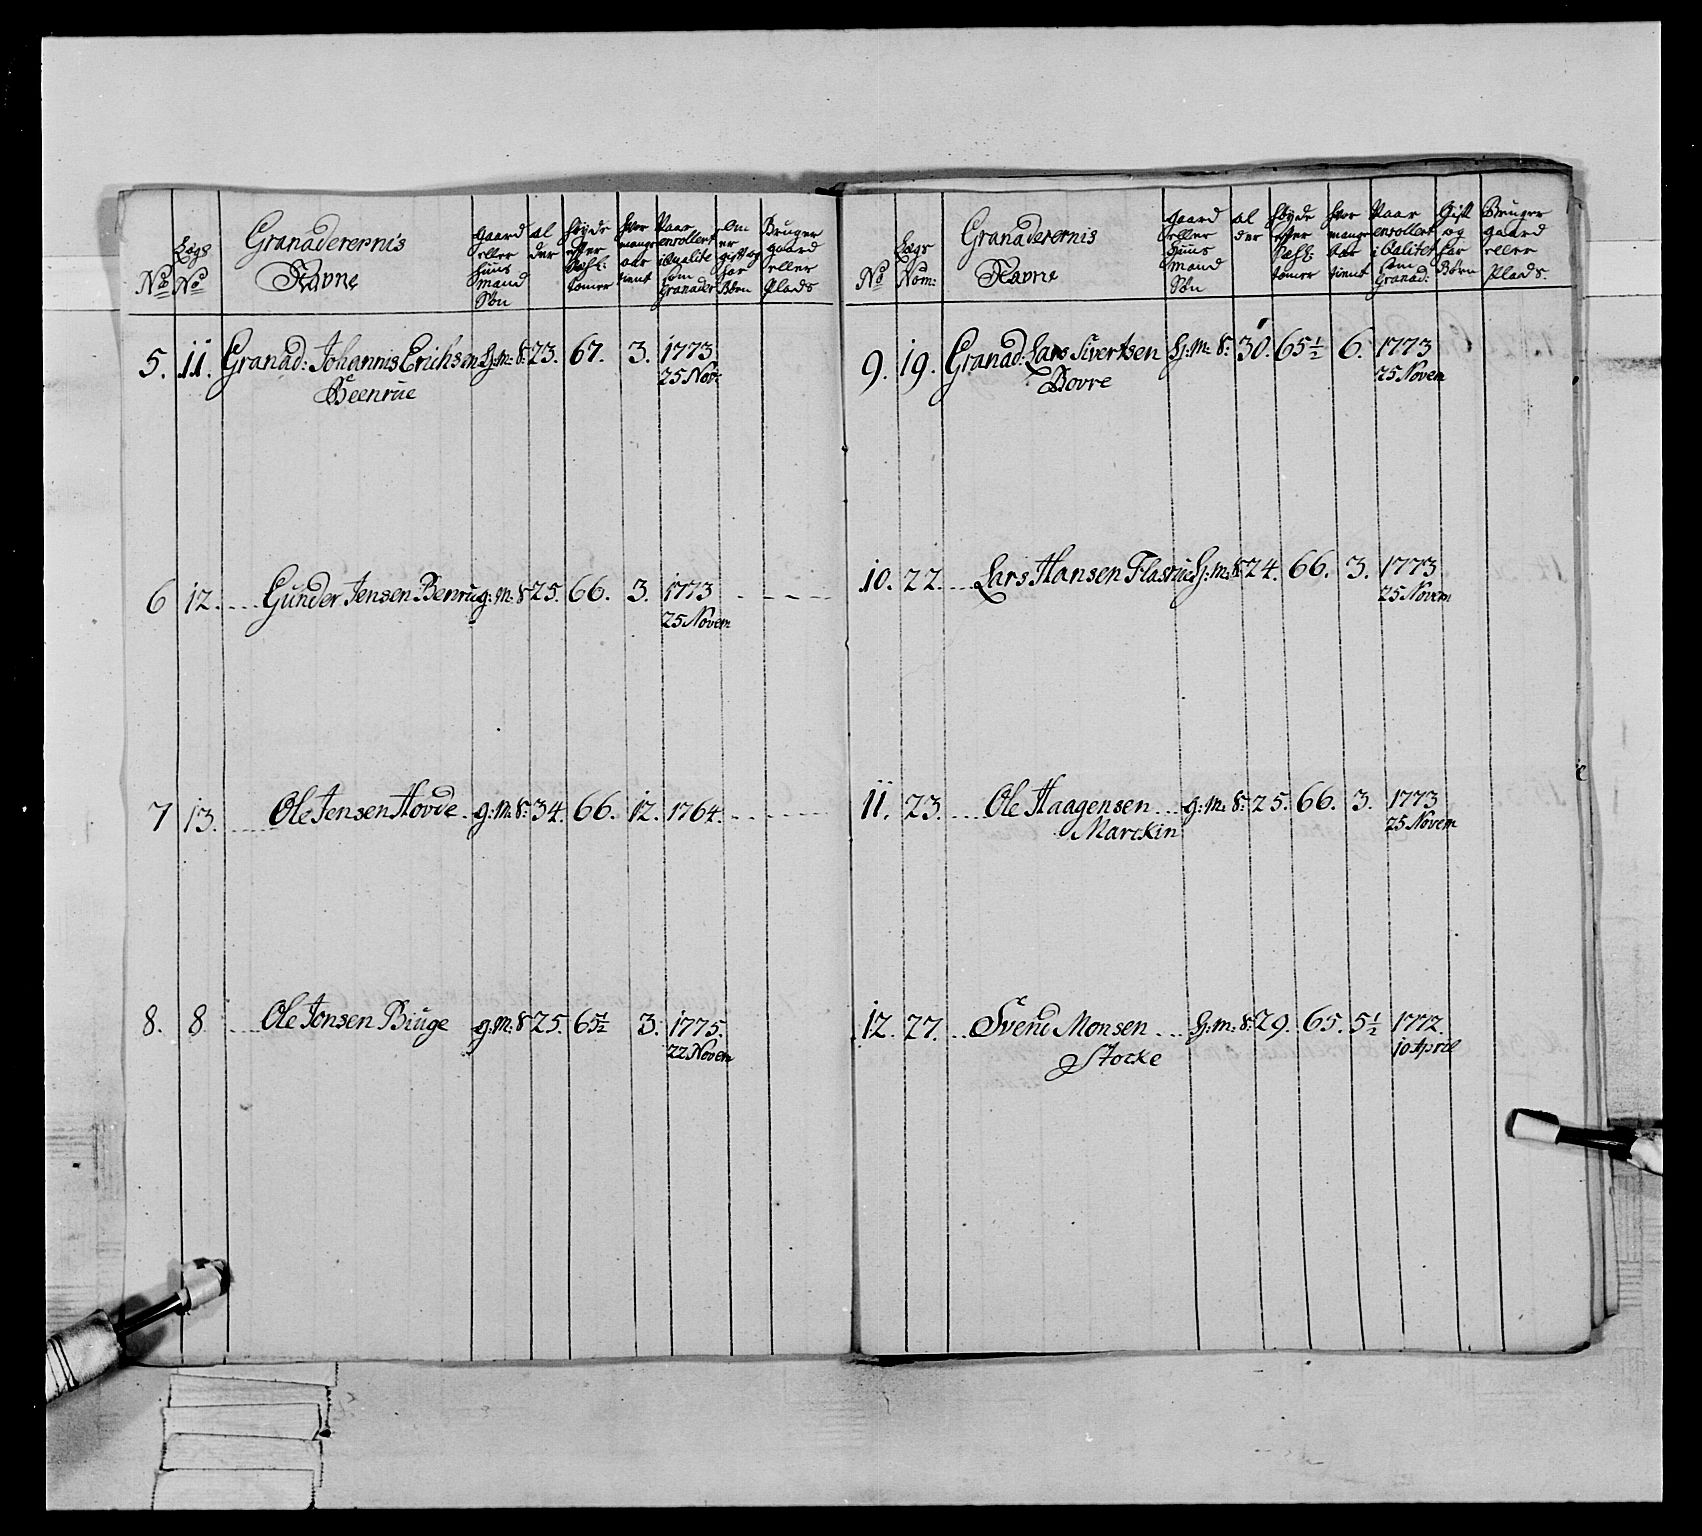 No
Lægs No
Granaderernis Navne
gaard eller Huus mand Søn
al der
Høyde efter tomer
hvor mange aar tient
Naar enrollert i Qualite som Granader
Om er gift og har Børn
Bruger gaard eller Plads
5. 11. Granad: Johannis Erichsen H:m:S: 23. 67. 3. 1773
Beenrüe 25 Nov:
6 12. Gunder Jensen Benru g:m:S 25. 66. 3. 1773
25 Novem
7 13. Ole Jensen Hovde g:m:S: 34. 66. 12. 1764.
8. 8 Ole Jonsen Biuge g:m:S 25. 65½ 3. 1775.
22 Novem
No
Lægs Num:
Granaderernis Navne
gaard eller Huus mand Søn
al der
Høyde efter tomer
hvor mange aar tient
Naar enrollert i Qalitet som Granad:
Gift og har Børn
Bruger gaard eller Plads.
9. 19. Granad: Lars Sivertsen H:m:S: 30. 65½ 6. 1773
Dovre 25 Novem
10. 22. Lars Hansen Flasrüe H:m:S: 24. 66. 3. 1773
25 Novem
11. 23. Ole Haagensen g:m:S: 25. 66. 3. 1773
Marckin 25 Novem
12. 27. Svend Monsen H:m:S: 29. 65. 5½ 1772.
Stocke 10 April